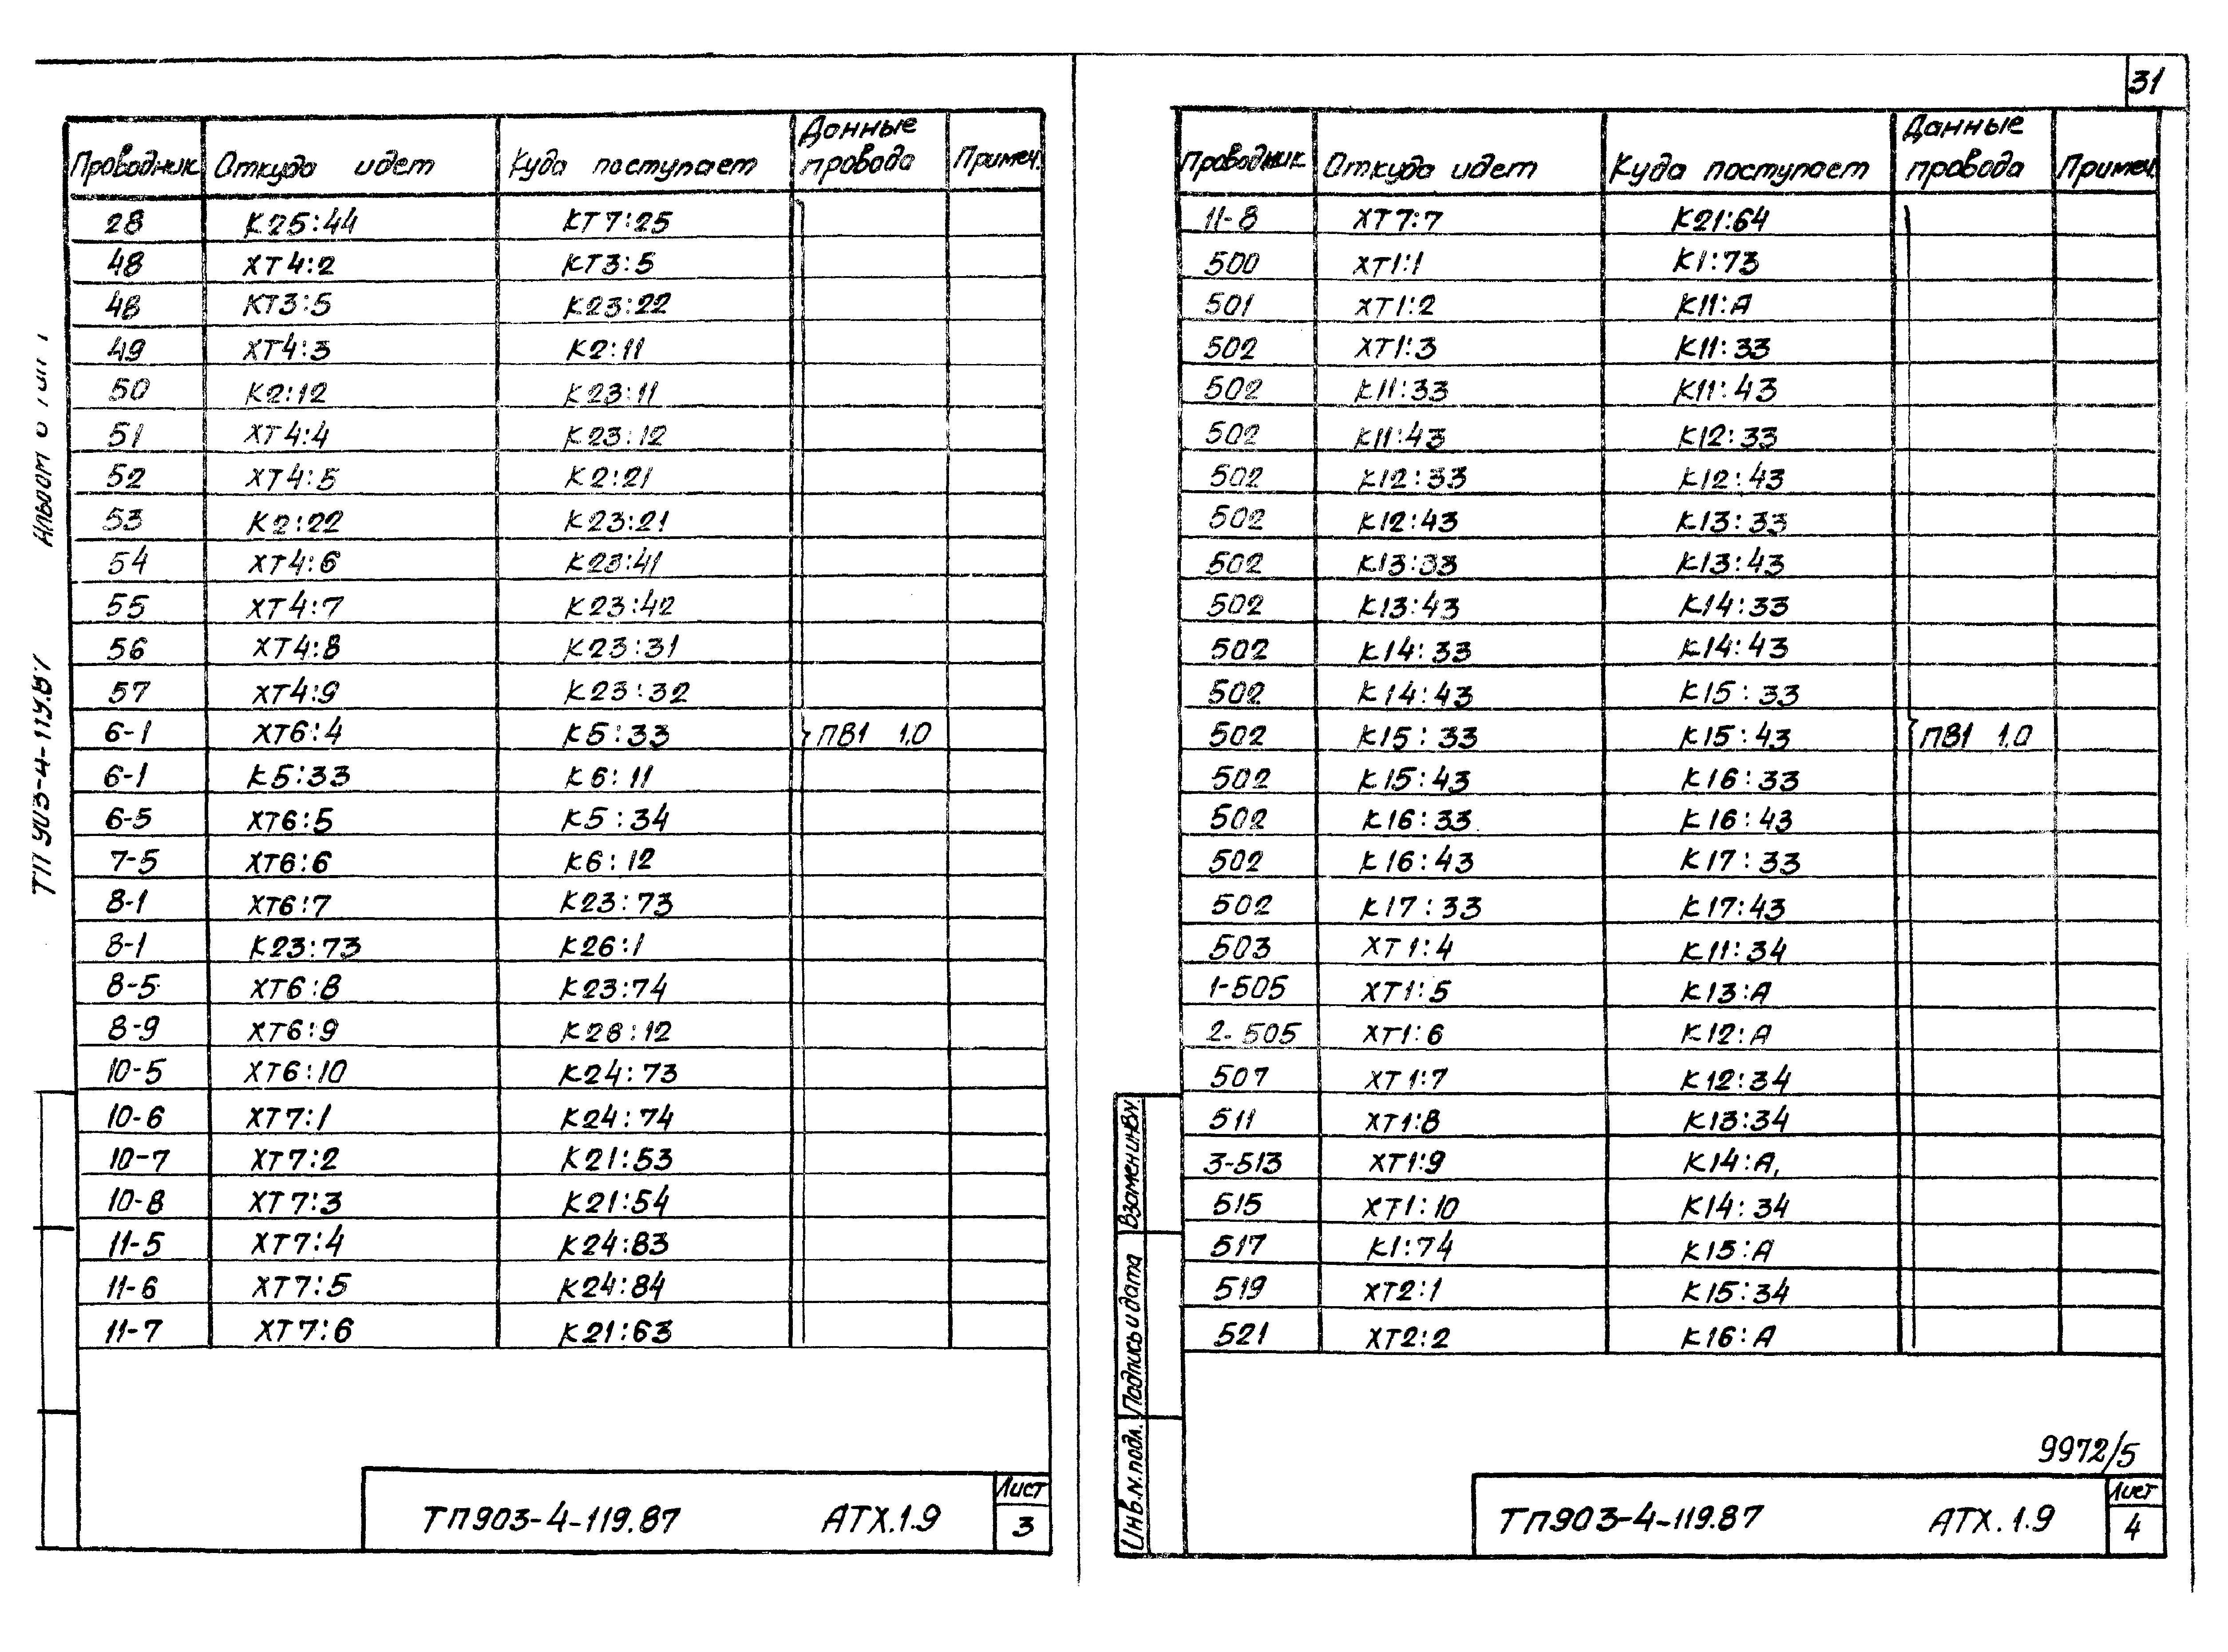 31
Проводник Откуда идет Куда поступает Данные провода Примеч.
28 К25:44 КТ7:25
48 ХТ4:2 КТ3:5
48 КТ3:5 К23:22
49 ХТ4:3 К2:11
50 К2:12 К23:11
51 ХТ4:4 К23:12
52 ХТ4:5 К2:21
53 К2:22 К23:21
54 ХТ4:6 К23:41
55 ХТ4:7 К23:42
56 ХТ4:8 К23:31
57 ХТ4:9 К23:32
6-1 ХТ6:4 К5:33 ПВ1 1.0
6-1 К5:33 К6:11
6-5 ХТ6:5 К5:34
7-5 ХТ6:6 К6:12
8-1 ХТ6:7 К23:73
8-1 К23:73 К26:1
8-5 ХТ6:8 К23:74
8-9 ХТ6:9 К26:12
10-5 ХТ6:10 К24:73
10-6 ХТ7:1 К24:74
10-7 ХТ7:2 К21:53
10-8 ХТ7:3 К21:54
11-5 ХТ7:4 К24:83
11-6 ХТ7:5 К24:84
11-7 ХТ7:6 К21:63
ТП903-4-119.87 АТХ.1.9 Лист 3
Проводник Откуда идет Куда поступает Данные провода Примеч.
11-8 ХТ7:7 К21:64
500 ХТ1:1 К1:73
501 ХТ1:2 К11:А
502 ХТ1:3 К11:33
502 К11:33 К11:43
502 К11:43 К12:33
502 К12:33 К12:43
502 К12:43 К13:33
502 К13:33 К13:43
502 К13:43 К14:33
502 К14:33 К14:43
502 К14:43 К15:33
502 К15:33 К15:43 ПВ1 1.0
502 К15:43 К16:33
502 К16:33 К16:43
502 К16:43 К17:33
502 К17:33 К17:43
503 ХТ1:4 К11:34
1-505 ХТ1:5 К13:А
2-505 ХТ1:6 К12:А
507 ХТ1:7 К12:34
511 ХТ1:8 К13:34
3-513 ХТ1:9 К14:А
515 ХТ1:10 К14:34
517 К1:74 К15:А
519 ХТ2:1 К15:34
521 ХТ2:2 К16:А
Инв.N.подл. Подпись и дата Взамен инв.N
9972/5
ТП903-4-119.87 АТХ.1.9 Лист 4